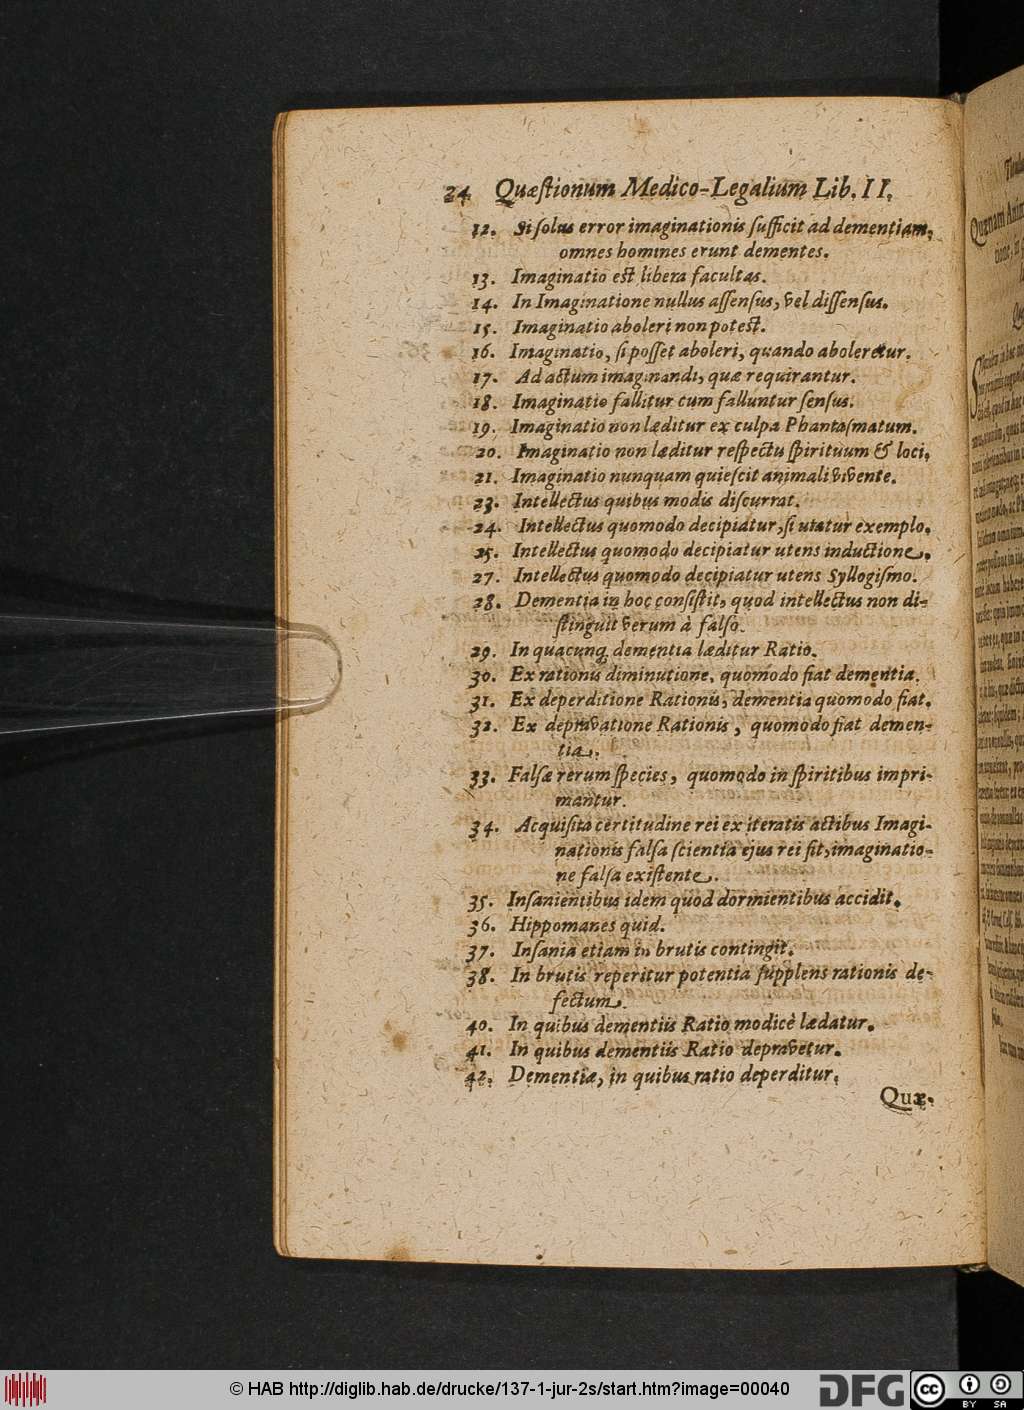 24 Quæſtionum Medico-Legalium Lib. II.
12. Si ſolus error imaginationis ſufficit ad dementiam,
omnes homines erunt dementes.
13. Imaginatio est libera facultas.
14. In Imaginatione nullus aſſenſus, vel diſſenſus.
15. Imaginatio aboleri non potest.
16. Imaginatio, ſi poſſet aboleri, quando aboleretur.
17. Ad actum imaginandi, quæ requirantur.
18. Imaginatio fallitur cum falluntur ſenſus.
19. Imaginatio non læditur ex culpa Phantaſmatum.
20. Imaginatio non læditur reſpectu ſpirituum & loci.
21. Imaginatio nunquam quieſcit animali vivente.
23. Intellectus quibus modis diſcurrat.
24. Intellectus quomodo decipiatur, ſi utatur exemplo.
25. Intellectus quomodo decipiatur utens inductione.
27. Intellectus quomodo decipiatur utens Syllogiſmo.
28. Dementia in hoc conſiſtit, quod intellectus non di-
ſtinguit verum à falſo.
29. In quacunq; dementia læditur Ratio.
30. Ex rationis diminutione, quomodo fiat dementia.
31. Ex deperditione Rationis, dementia quomodo fiat.
32. Ex depravatione Rationis, quomodo fiat demen-
tia.
33. Falſæ rerum ſpecies, quomodo in ſpiritibus impri-
mantur.
34. Acquiſita certitudine rei ex iteratis actibus Imagi-
nationis falſa ſcientia ejus rei fit, imaginatio-
ne falſa exiſtente.
35. Inſanientibus idem quod dormientibus accidit.
36. Hippomanes quid.
37. Inſania etiam in brutis contingit.
38. In brutis reperitur potentia ſupplens rationis de-
fectum.
40. In quibus dementiis Ratio modicè lædatur.
41. In quibus dementiis Ratio depravetur.
42. Dementiæ, in quibus ratio deperditur.
Quæ-
© HAB http://diglib.hab.de/drucke/137-1-jur-2s/start.htm?image=00040
DFG
cc BY SA